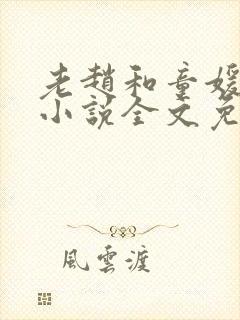 老趙和童媛
小說全文免
風雲渡